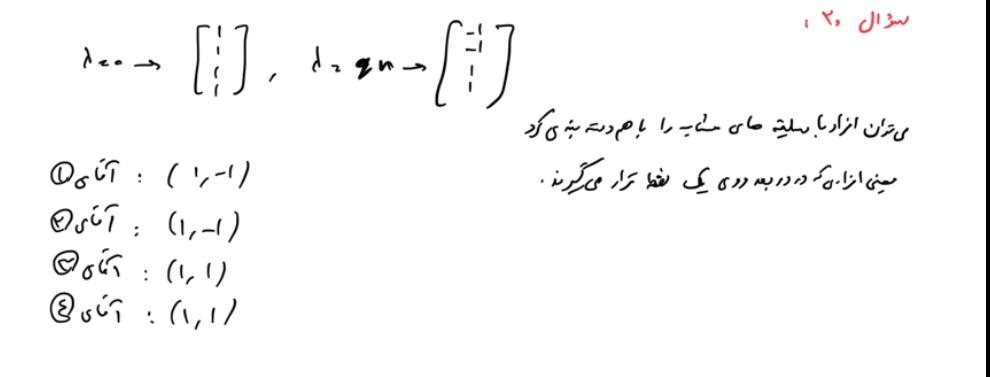 سؤال ۲۰:
λ=0 → [1 1 1 1], λ=2n → [-1 -1 1 1]
می‌توان افراد با سلیقه های مشابه را با هم دسته بندی کرد
یعنی افرادی که در دو بعد روی یک نقطه قرار می‌گیرند.
آقای ①: (1,-1)
آقای ②: (1,-1)
آقای ③: (1,1)
آقای ④: (1,1)